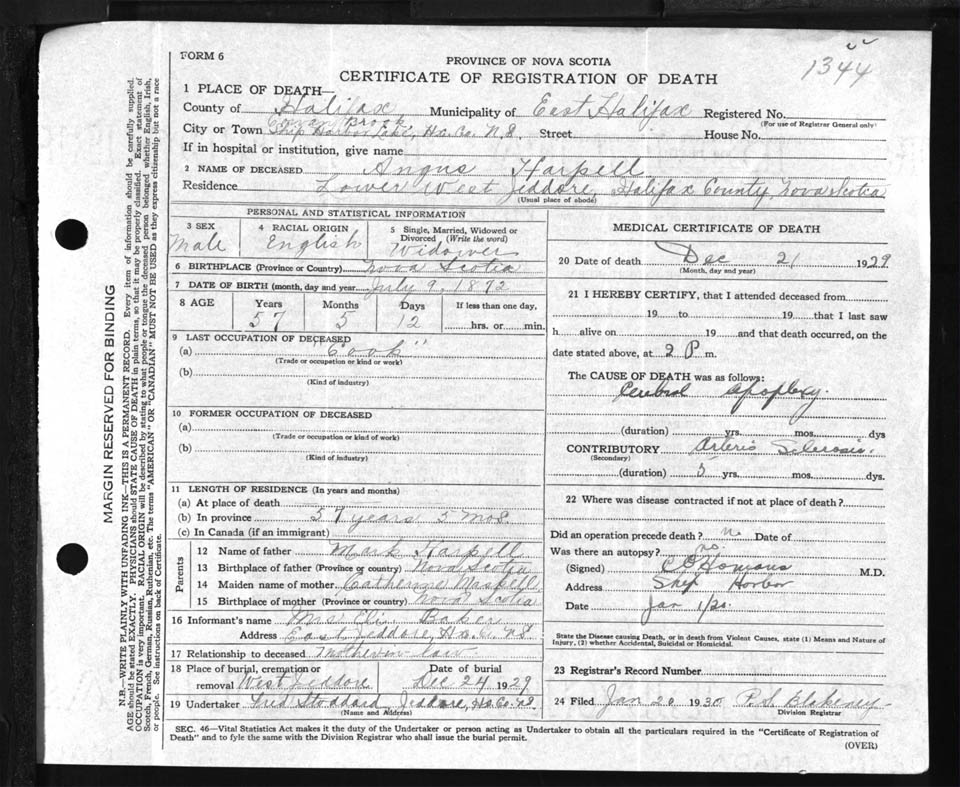 FORM 6
1344
PROVINCE OF NOVA SCOTIA
CERTIFICATE OF REGISTRATION OF DEATH
1 PLACE OF DEATH—
County of Halifax Municipality of East Halifax Registered No.
(For use of Registrar General only)
Brook
City or Town Ship Harbor Lake, Hx. Co. N.S. Street House No.
If in hospital or institution, give name
2 NAME OF DECEASED Angus Harpell
Residence Lower West Jeddore, Halifax County, Nova Scotia
(Usual place of abode)
PERSONAL AND STATISTICAL INFORMATION
3 SEX 4 RACIAL ORIGIN 5 Single, Married, Widowed or
Divorced (Write the word)
Male English Widower
6 BIRTHPLACE (Province or Country) Nova Scotia
7 DATE OF BIRTH (month, day and year) July 9, 1872
8 AGE Years Months Days If less than one day,
57 5 12 hrs. or min.
9 LAST OCCUPATION OF DECEASED
(a) "Cook"
(Trade or occupation or kind or work)
(b)
(Kind of industry)
10 FORMER OCCUPATION OF DECEASED
(a)
(Trade or occupation or kind of work)
(b)
(Kind of industry)
11 LENGTH OF RESIDENCE (In years and months)
(a) At place of death
(b) In province 57 years 5 mos.
(c) In Canada (if an immigrant)
Parents
12 Name of father Mark Harpell
13 Birthplace of father (Province or country) Nova Scotia
14 Maiden name of mother Catherine Maskell
15 Birthplace of mother (Province or country) Nova Scotia
16 Informant's name Mrs Eli Baker
Address East Jeddore, Hx. Co. N.S.
17 Relationship to deceased Mother in law
18 Place of burial, cremation or Date of burial
removal West Jeddore Dec 24 1929
19 Undertaker Fred Stoddard, Jeddore, Hx. Co. N.S.
(Name and Address)
MEDICAL CERTIFICATE OF DEATH
20 Date of death Dec 21 1929
(Month, day and year)
21 I HEREBY CERTIFY, that I attended deceased from
19 to 19 that I last saw
h alive on 19 and that death occurred, on the
date stated above, at 2 P. m.
The CAUSE OF DEATH was as follows:
Cerebral apoplexy.
(duration) yrs. mos. dys
CONTRIBUTORY Arterio Sclerosis.
(Secondary)
(duration) 5 yrs. mos. dys.
22 Where was disease contracted if not at place of death?
Did an operation precede death? no Date of
Was there an autopsy? no.
(Signed) M.D.
Address Ship Harbor
Date Jan 1/30.
State the Disease causing Death, or in death from Violent Causes, state (1) Means and Nature of
Injury, (2) whether Accidental, Suicidal or Homicidal.
23 Registrar's Record Number
24 Filed Jan 20 1930 P.S. Blakeney
Division Registrar
SEC. 46—Vital Statistics Act makes it the duty of the Undertaker or person acting as Undertaker to obtain all the particulars required in the "Certificate of Registration of
Death" and to fyle the same with the Division Registrar who shall issue the burial permit.
(OVER)
MARGIN RESERVED FOR BINDING
N.B.—WRITE PLAINLY WITH UNFADING INK—THIS IS A PERMANENT RECORD. Every item of information should be carefully supplied.
AGE should be stated EXACTLY. PHYSICIANS should STATE CAUSE OF DEATH in plain terms, so that it may be properly classified. Exact statement of
OCCUPATION is very important. RACIAL ORIGIN will be described by stating to what people or tongue the deceased person belonged whether English, Irish,
Scotch, French, German, Russian, Ruthenian, etc. The terms "AMERICAN" OR "CANADIAN" MUST NOT BE USED as they express citizenship but not a race
or people. See instructions on back of Certificate.